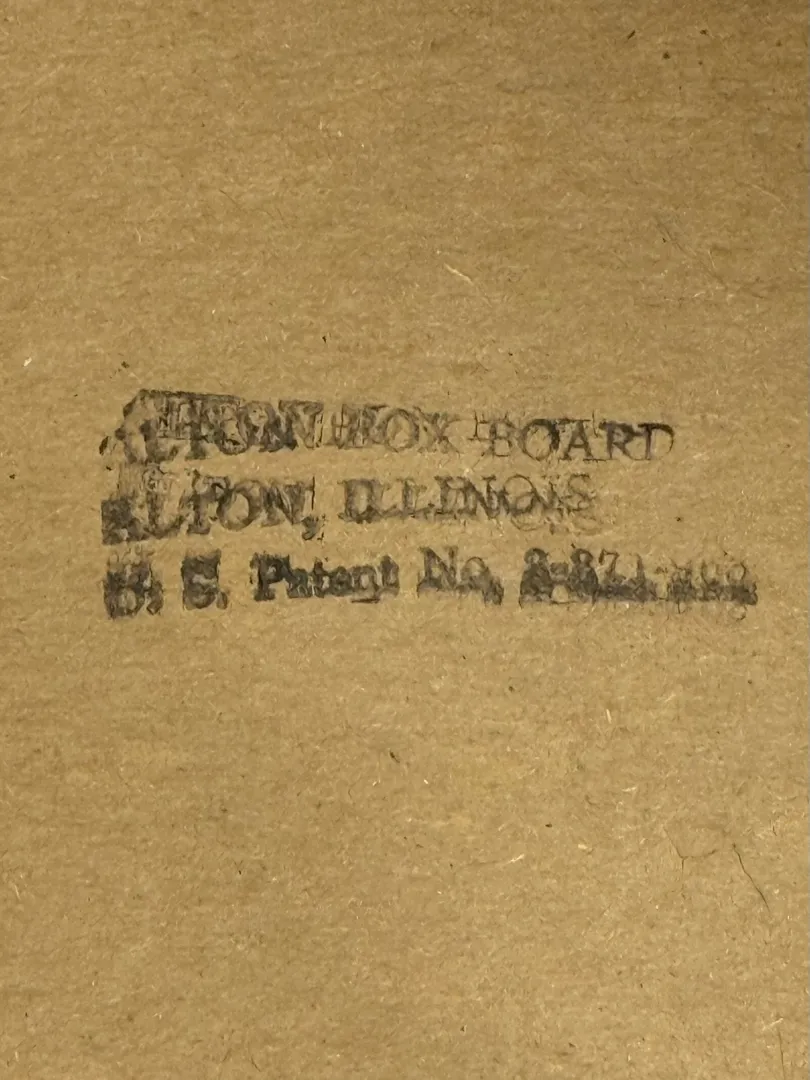 ALTON BOX BOARD
ALTON, ILLINOIS
U. S. Patent No.